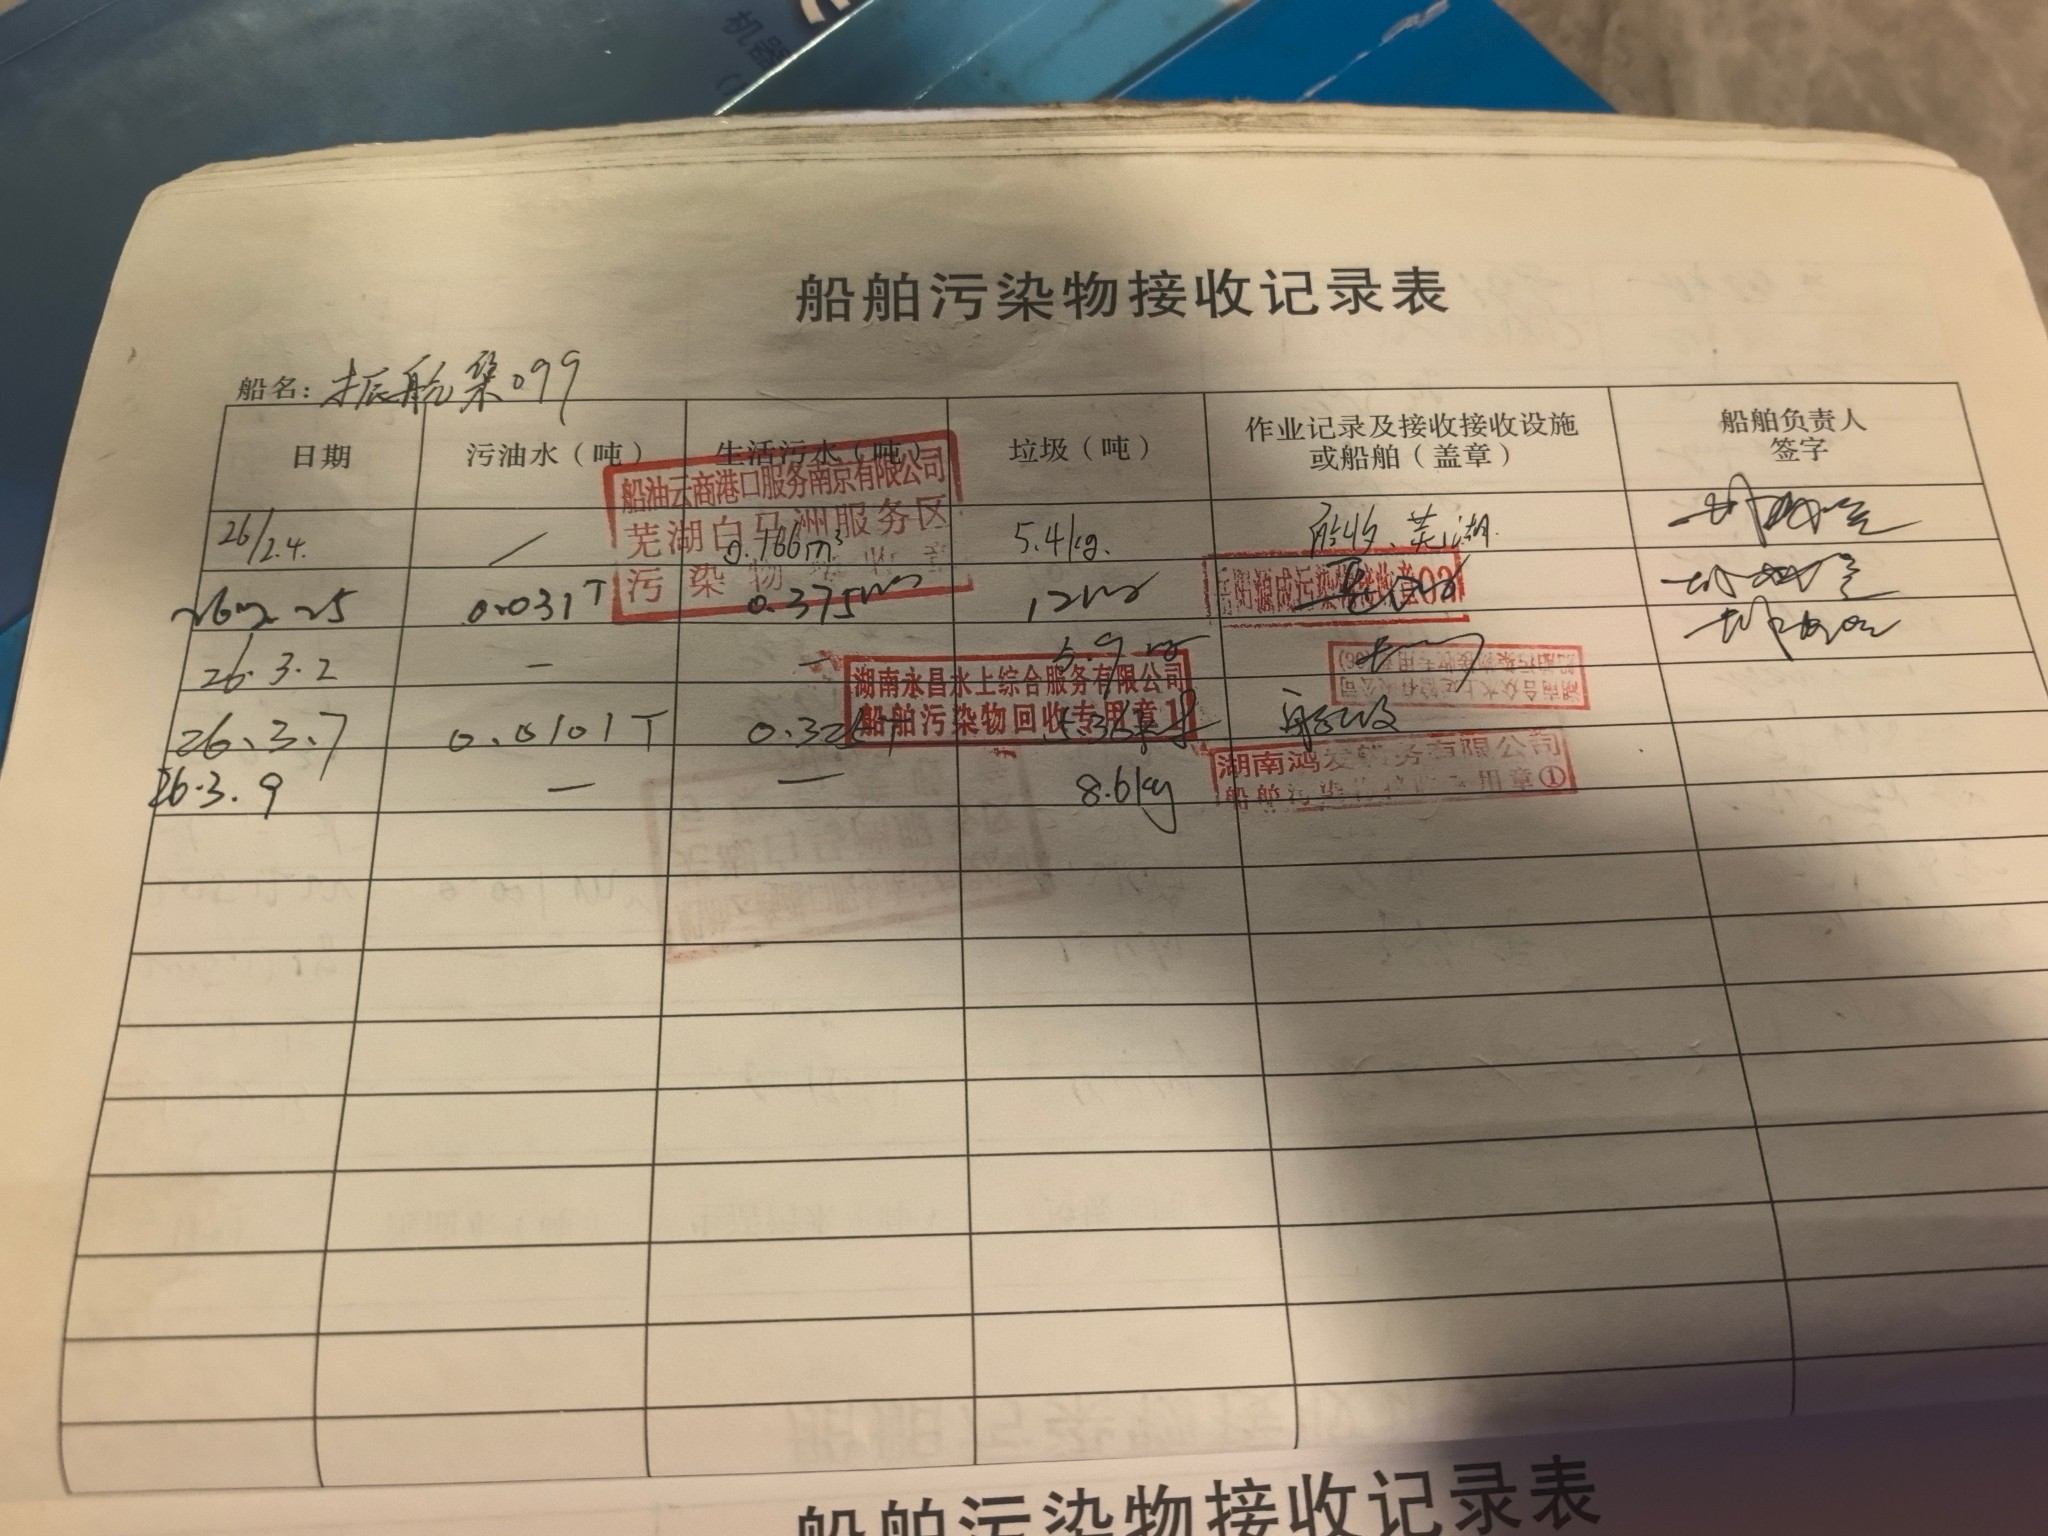 机器
船舶污染物接收记录表
船名: 振航集099
日期 污油水（吨） 生活污水（吨） 垃圾（吨） 作业记录及接收接收设施或船舶（盖章） 船舶负责人签字
船油云商港口服务南京有限公司
芜湖白马洲服务区
污染物
26/2.4. / 0.166m³ 5.4kg. 船收、芜湖.
26.2.25 0.031T 0.375m³ 12
26.3.2 — — 5.9
湖南永昌水上综合服务有限公司
船舶污染物回收专用章1
26.3.7 0.0101T 船收
湖南鸿发船务有限公司
船舶污染物接收专用章①
26.3.9 — — 8.6kg
船舶污染物接收记录表